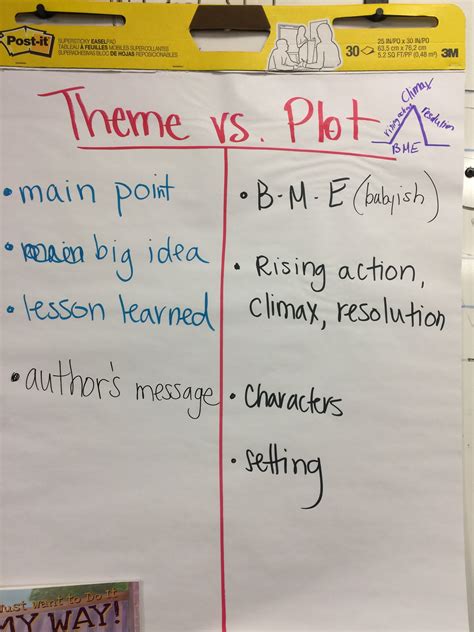 Post-it
SUPERSTICKY EASELPAD
TABLEAU À FEUILLES MOBILES SUPERCOLLANTES
SUPERADHESIVAS BLOC DE HOJAS REPOSICIONABLES
30
25 IN/PO x 30 IN/PO
63,5 cm x 76,2 cm
5.2 SQ FT/PI² (0,48 m²)
3M
Theme vs. Plot
rising action
Climax
resolution
BME
• main point
• big idea
• lesson learned
• author's message
• B-M-E (babyish)
• Rising action,
climax, resolution
• Characters
• setting
Just Want to Do It
MY WAY!